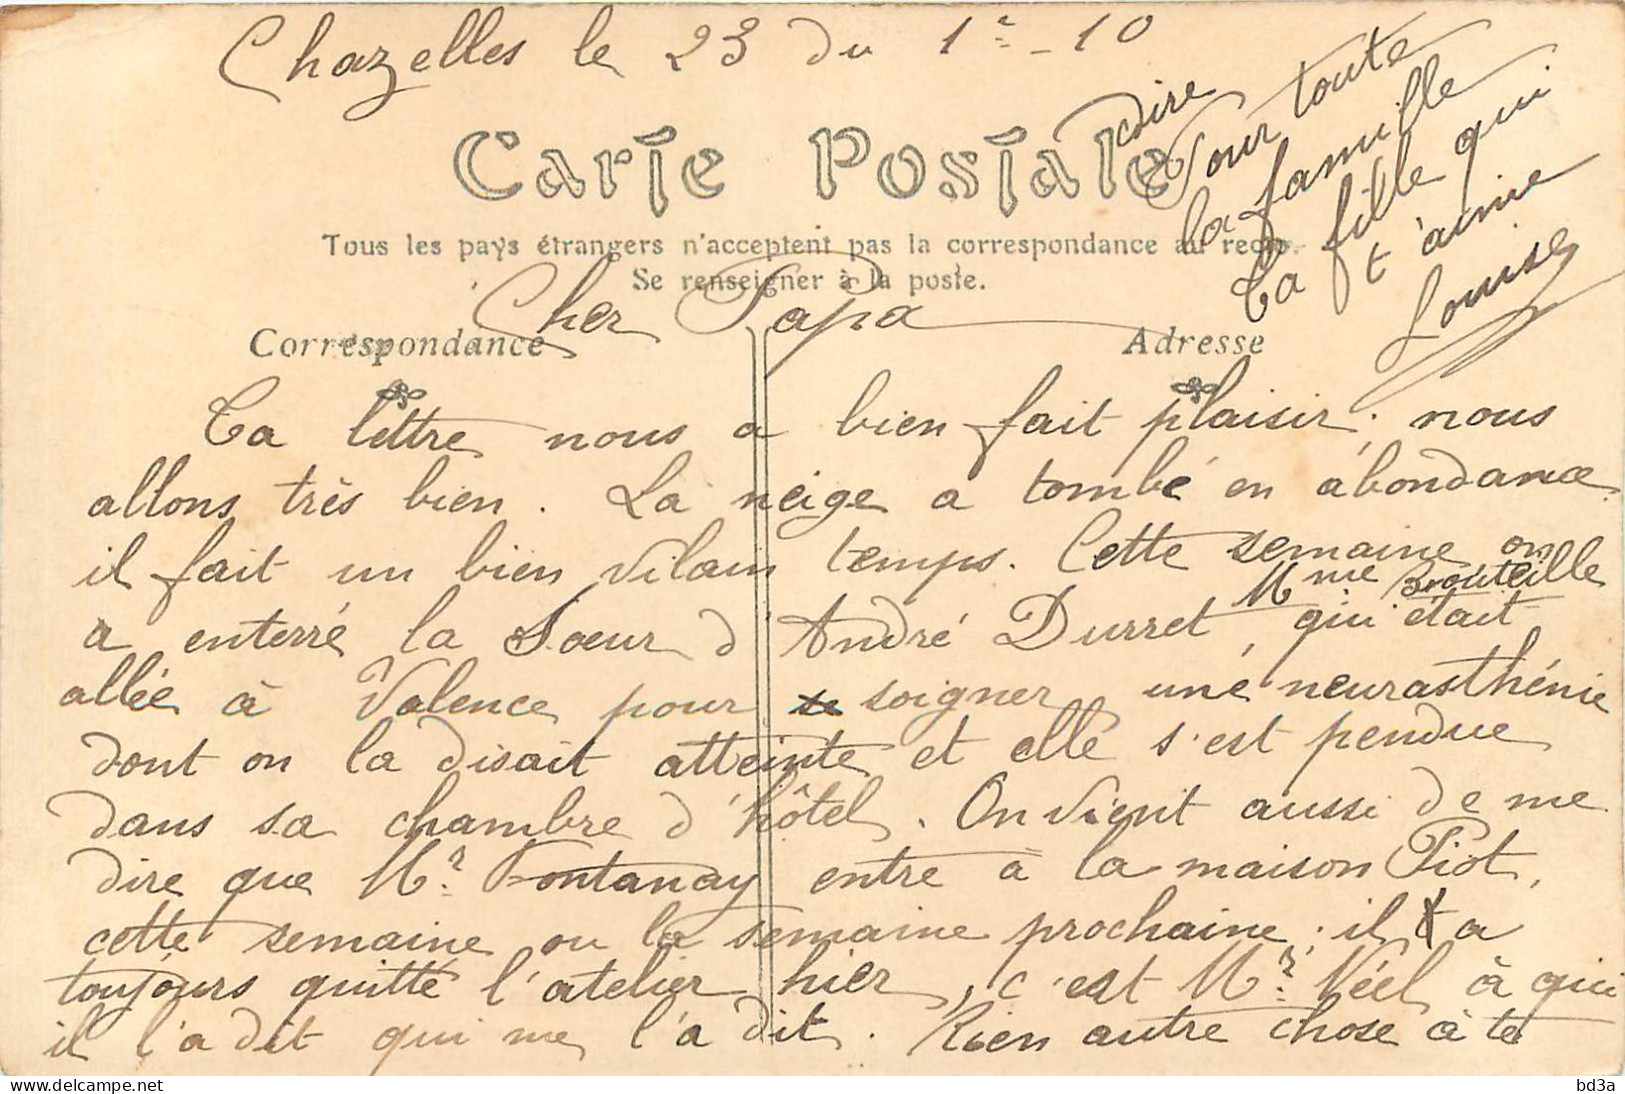 Chazelles le 23 du 1r - 10
Carte Postale
Tous les pays étrangers n'acceptent pas la correspondance au recto.
Se renseigner à la poste.
Correspondance
Adresse
Cher Papa
Ta lettre nous a bien fait plaisir. nous
allons très bien. La neige a tombé en abondance
il fait un bien vilain temps. Cette semaine on
a enterré la Soeur d'André Durret, Mme Brouteille qui était
allée à Valence pour se soigner une neurasthénie
dont on la disait atteinte et elle s'est pendue
dans sa chambre d'hôtel. On vient aussi de me
dire que Mr. Fontanay entre à la maison Piot,
cette semaine ou la semaine prochaine; il a
toujours quitté l'atelier hier, c'est Mr. Néel à qui
il l'a dit qui me l'a dit. Rien autre chose à te
dire
Pour toute
la famille
Ta fille qui
t'aime
Louise
bd3a